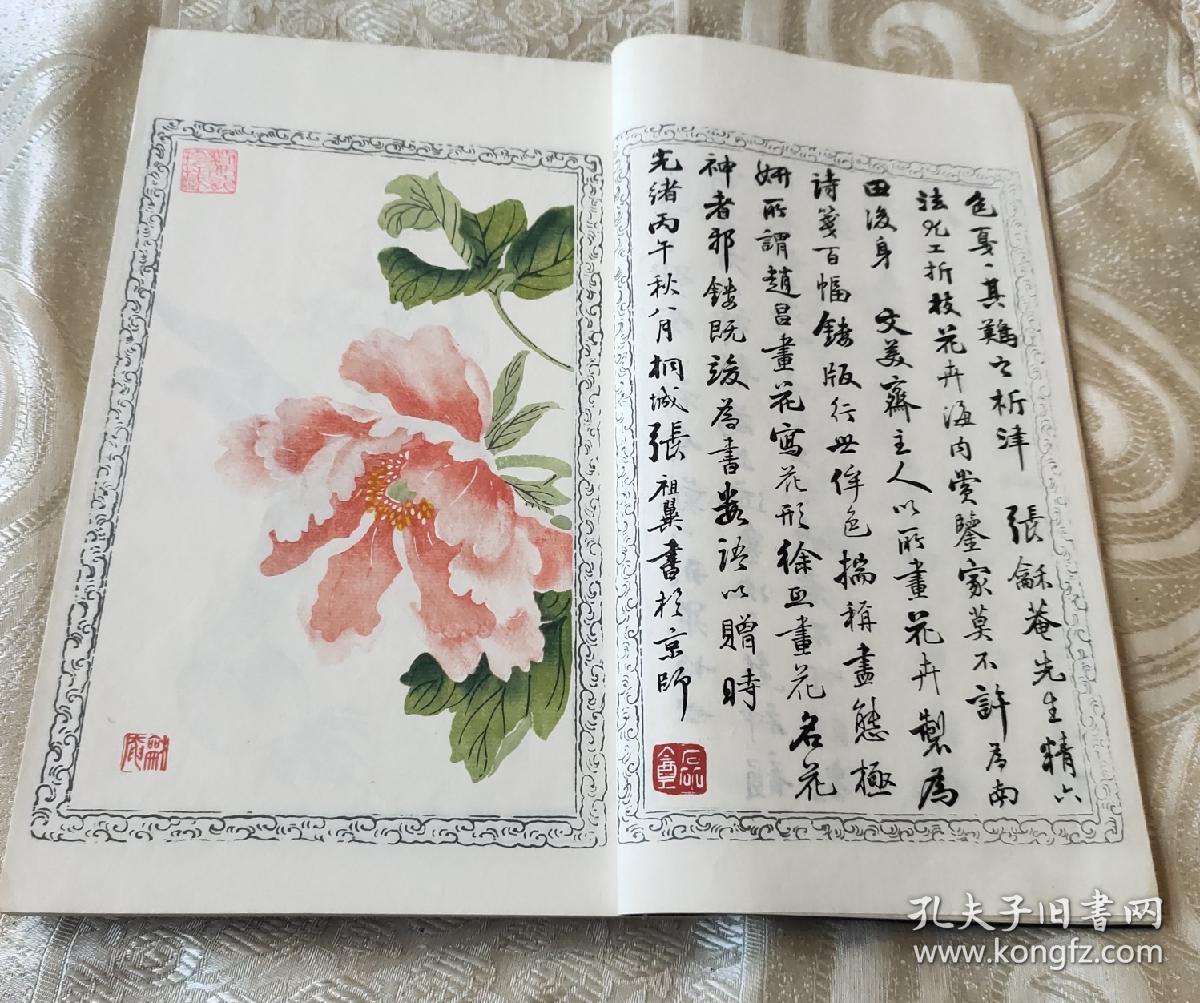 色戛〻其難之析津 張龢菴先生精六
法尤工折枝花卉海内賞鑒家莫不許爲南
田後身 文美齋主人以所畫花卉製爲
詩箋百幅鏤版行世侔色揣稱盡態極
妍所謂趙昌畫花寫花形徐熙畫花名花
神者邪鏤既竣為書數語以贈時
光緒丙午秋八月桐城張祖翼書於京師
磊盦
孔夫子旧書网
www.kongfz.com